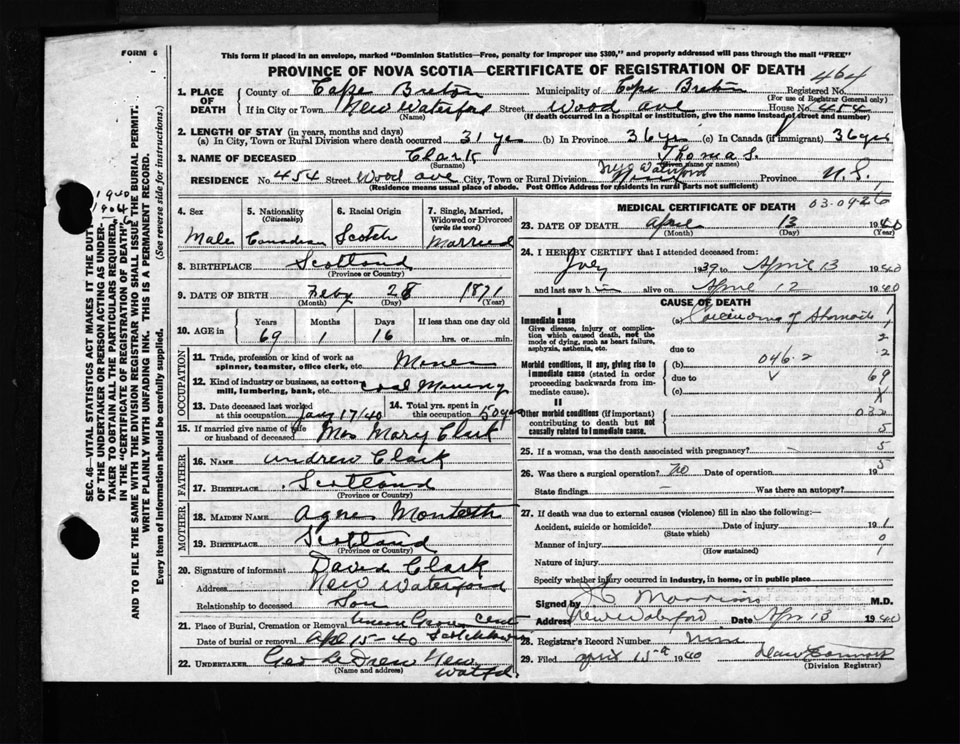 FORM 6
This form if placed in an envelope, marked "Dominion Statistics—Free, penalty for improper use $300," and properly addressed will pass through the mail "FREE"
PROVINCE OF NOVA SCOTIA—CERTIFICATE OF REGISTRATION OF DEATH 464
1. PLACE OF DEATH
County of Cape Breton Municipality of Cape Breton Registered No.
(For use of Registrar General only)
If in City or Town New Waterford Street Wood ave House No. 454
(Name) (If death occurred in a hospital or institution, give the name instead of street and number)
2. LENGTH OF STAY (in years, months and days)
(a) In City, Town or Rural Division where death occurred 31 yr (b) In Province 36 yr (c) In Canada (if immigrant) 36 yr
3. NAME OF DECEASED Clark Thomas.
(Surname) (Given name or names)
RESIDENCE No. 454 Street Wood ave City, Town or Rural Division New Waterford Province N.S.
(Residence means usual place of abode. Post Office Address for residents in rural parts not sufficient)
4. Sex
Male
5. Nationality
(Citizenship)
Canadian
6. Racial Origin
Scotch
7. Single, Married, Widowed or Divorced
(write the word)
Married
8. BIRTHPLACE Scotland
(Province or Country)
9. DATE OF BIRTH Feby 28 1871
(Month) (Day) (Year)
10. AGE in
Years Months Days If less than one day old
69 1 16 hrs. or min.
OCCUPATION
11. Trade, profession or kind of work as spinner, teamster, office clerk, etc. Miner
12. Kind of industry or business, as cotton mill, lumbering, bank, etc. Coal Mining
13. Date deceased last worked at this occupation Jany 17/40
14. Total yrs. spent in this occupation 50 yrs
15. If married give name of wife or husband of deceased Mrs Mary Clark
FATHER
16. NAME Andrew Clark
17. BIRTHPLACE Scotland
(Province or Country)
MOTHER
18. MAIDEN NAME Agnes Monteth
19. BIRTHPLACE Scotland
(Province or Country)
20. Signature of informant David Clark
Address New Waterford
Relationship to deceased Son
21. Place of Burial, Cremation or Removal
Date of burial or removal Apl 15-40
22. UNDERTAKER Geo
(Name and address)
MEDICAL CERTIFICATE OF DEATH
23. DATE OF DEATH April 13 1940
(Month) (Day) (Year)
24. I HEREBY CERTIFY that I attended deceased from:
1939 to April 13 1940
and last saw h im alive on April 12 1940
CAUSE OF DEATH
I
Immediate cause (a) Carcinoma of Stomach
Give disease, injury or complication which caused death, not the mode of dying, such as heart failure, asphyxia, asthenia, etc.
due to
Morbid conditions, if any, giving rise to immediate cause (stated in order proceeding backwards from immediate cause). (b) 046.2
due to
(c)
II
Other morbid conditions (if important) contributing to death but not causally related to immediate cause.
25. If a woman, was the death associated with pregnancy?
26. Was there a surgical operation? no Date of operation 19
State findings Was there an autopsy?
27. If death was due to external causes (violence) fill in also the following:
Accident, suicide or homicide? Date of injury 19
(State which)
Manner of injury
(How sustained)
Nature of injury
Specify whether injury occurred in industry, in home, or in public place
Signed by Morrison M.D.
Address New Waterford Date Apr 13 1940
28. Registrar's Record Number
29. Filed April 15th 1940
(Division Registrar)
SEC. 46—VITAL STATISTICS ACT MAKES IT THE DUTY
OF THE UNDERTAKER OR PERSON ACTING AS UNDER-
TAKER TO OBTAIN ALL THE PARTICULARS REQUIRED
IN THE "CERTIFICATE OF REGISTRATION OF DEATH";
AND TO FILE THE SAME WITH THE DIVISION REGISTRAR WHO SHALL ISSUE THE BURIAL PERMIT.
WRITE PLAINLY WITH UNFADING INK. THIS IS A PERMANENT RECORD.
Every item of information should be carefully supplied. (See reverse side for instructions.)